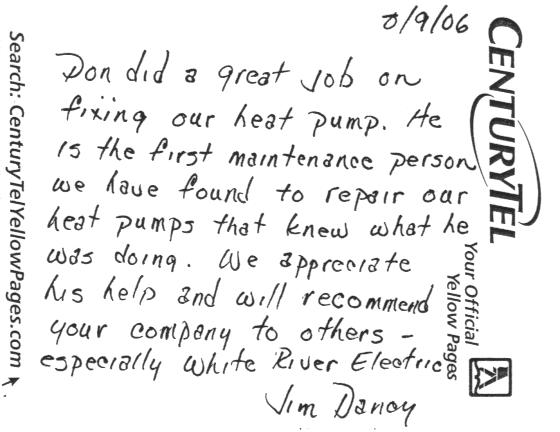 8/9/06
Don did a great job on
fixing our heat pump. He
is the first maintenance person
we have found to repair our
heat pumps that knew what he
was doing. We appreciate
his help and will recommend
your company to others -
especially White River Electric
Jim Dancy
CENTURYTEL
Your Official
Yellow Pages
Search: CenturyTelYellowPages.com